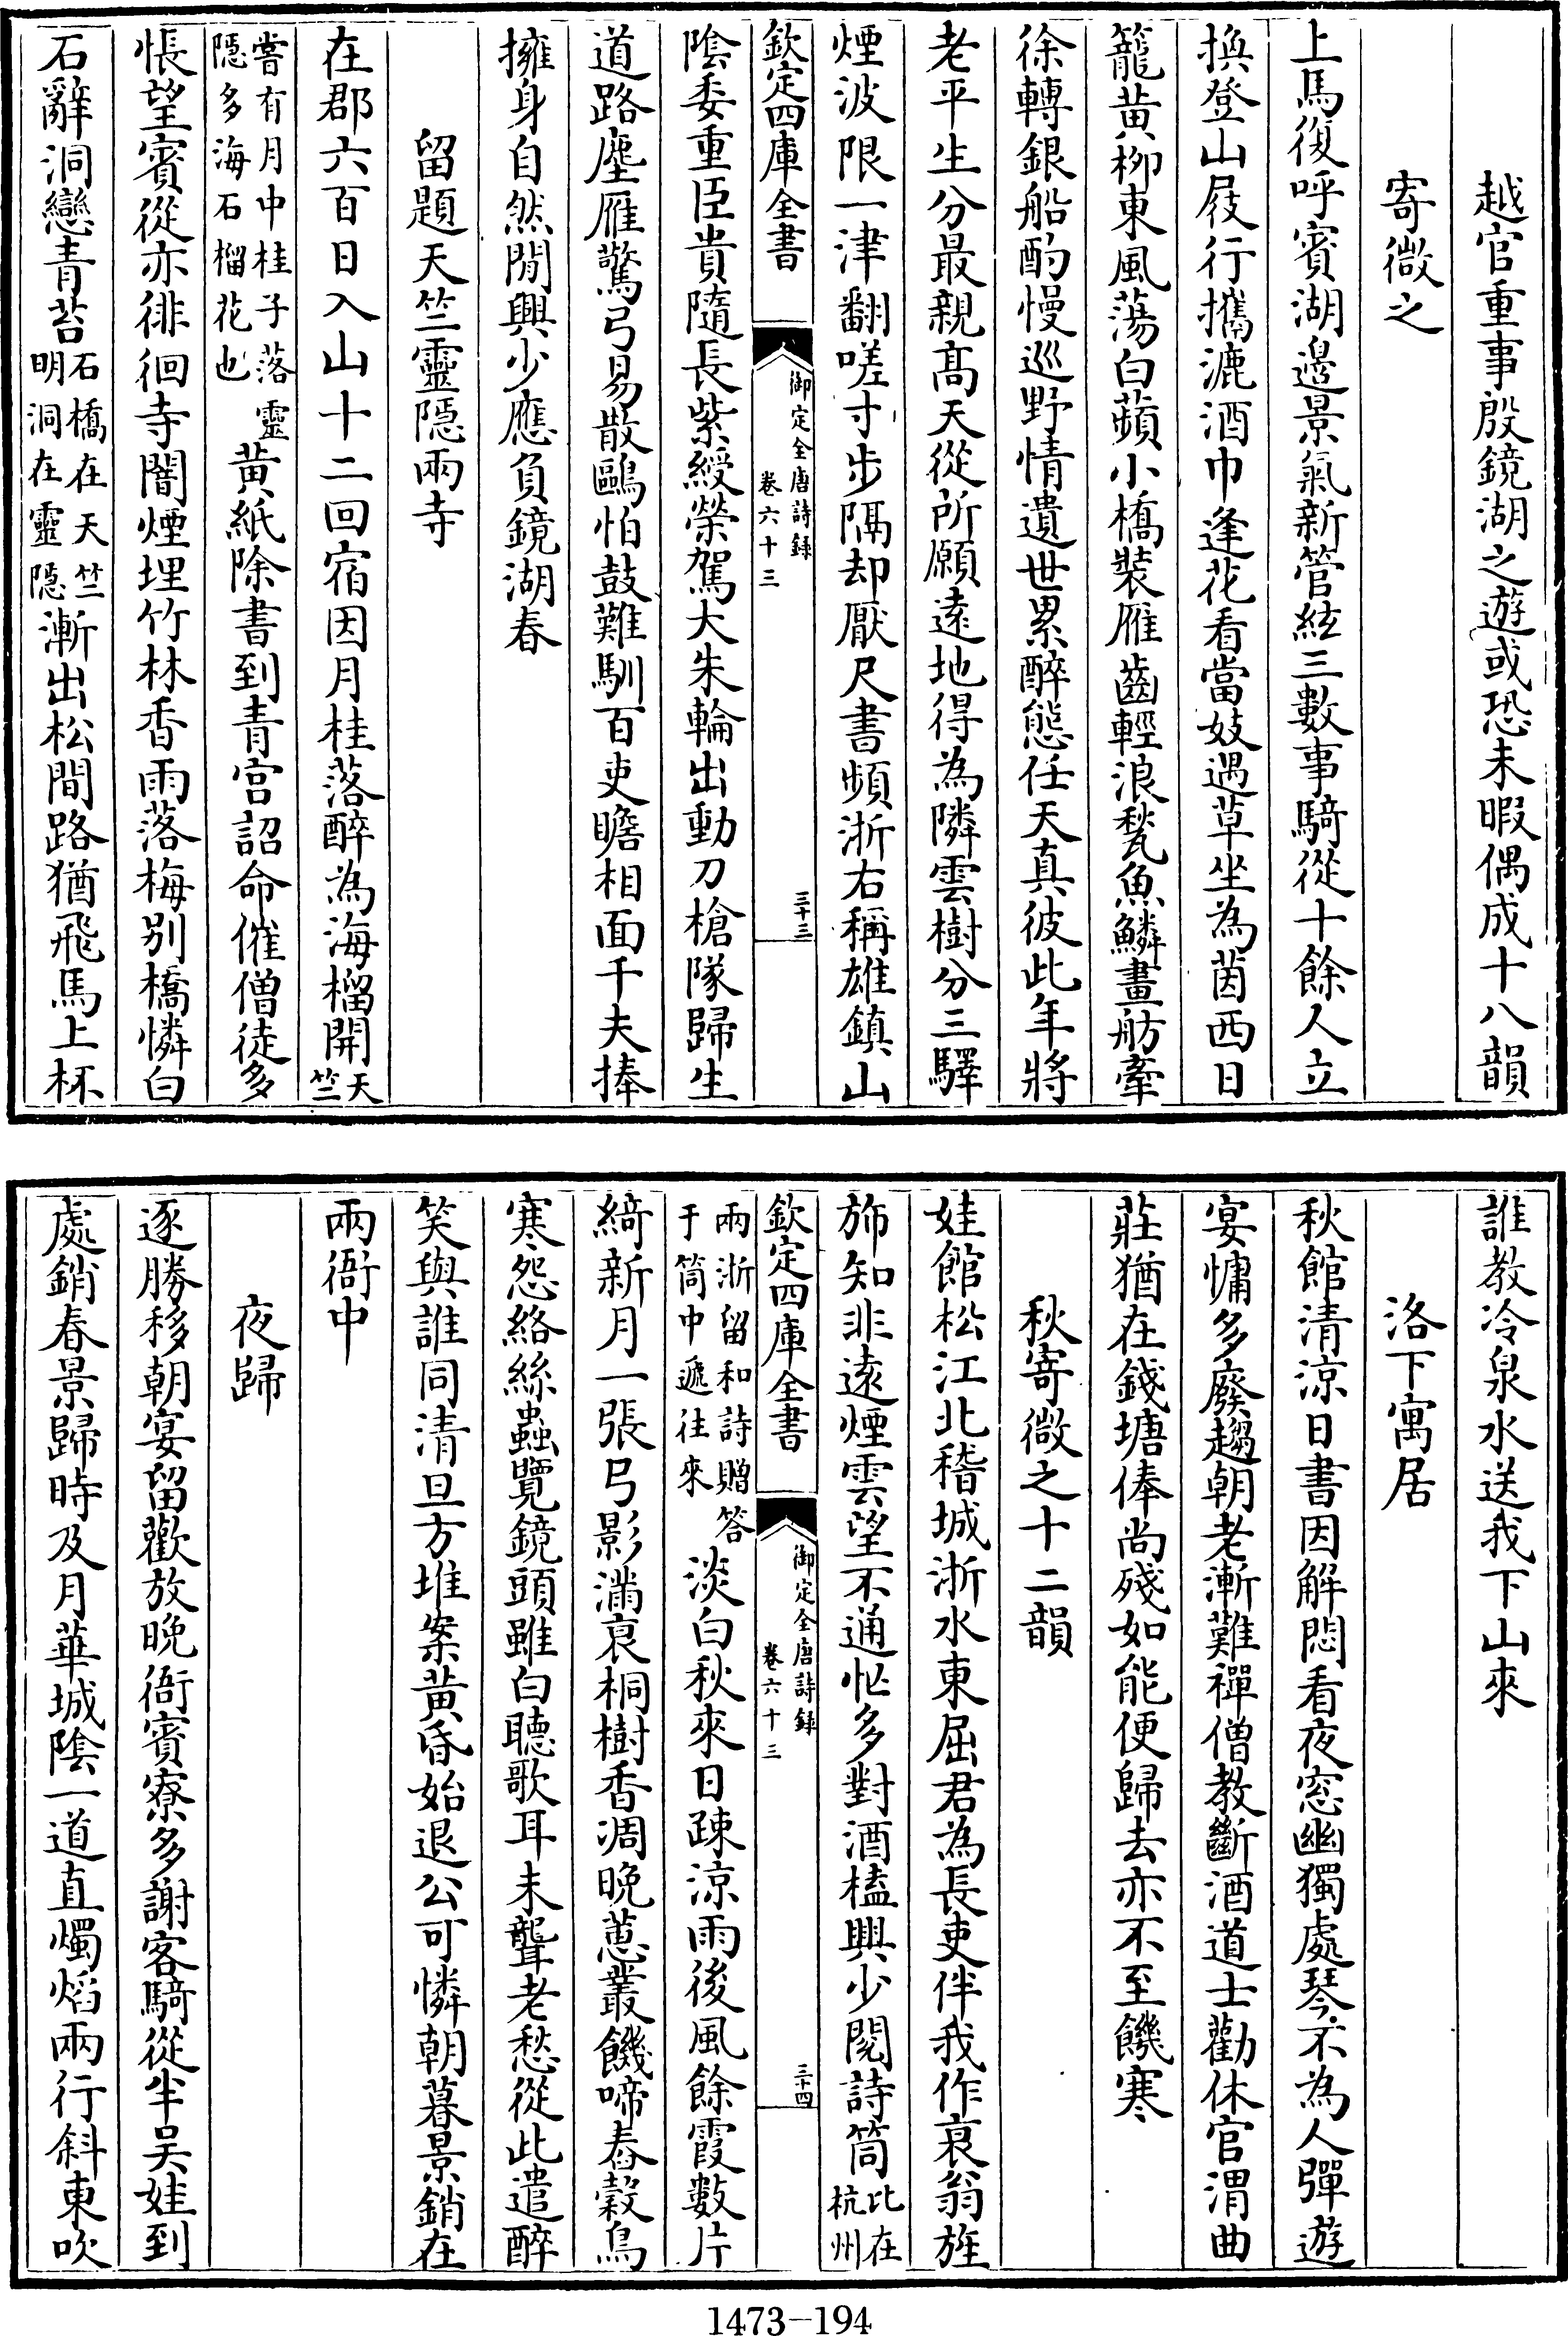 越官重事殷鏡湖之遊或恐未暇偶成十八韻
寄微之
上馬復呼賓湖邊景氣新管絃三數事騎從十餘人立
換登山屐行攜漉酒巾逢花看當妓遇草坐為茵西日
籠黃柳東風蕩白蘋小橋裝雁齒輕浪甃魚鱗畫舫牽
徐轉銀船酌慢巡野情遺世累醉態任天真彼此年將
老平生分最親高天從所願遠地得為隣雲樹分三驛
煙波限一津翻嗟寸步隔却厭尺書頻浙右稱雄鎮山
欽定四庫全書
御定全唐詩錄
卷六十三
三十三
陰委重臣貴隨長紫綬榮駕大朱輪出動刀槍隊歸生
道路塵雁驚弓易散鷗怕鼓難馴百吏瞻相面千夫捧
擁身自然閒興少應負鏡湖春
留題天竺靈隱兩寺
在郡六百日入山十二回宿因月桂落醉為海榴開天竺
嘗有月中桂子落靈
隱多海石榴花也
黃紙除書到青宮詔命催僧徒多
悵望賓從亦徘徊寺闇煙埋竹林香雨落梅別橋憐白
石辭洞戀青苔石橋在天竺
明洞在靈隱
漸出松間路猶飛馬上杯
誰教冷泉水送我下山來
洛下寓居
秋館清涼日書因解悶看夜窓幽獨處琴不為人彈遊
宴慵多廢趨朝老漸難禪僧教斷酒道士勸休官渭曲
莊猶在錢塘俸尚殘如能便歸去亦不至饑寒
秋寄微之十二韻
娃館松江北稽城浙水東屈君為長吏伴我作衰翁旌
斾知非遠煙雲望不通忙多對酒榼興少閱詩筒比在
杭州
欽定四庫全書
御定全唐詩錄
卷六十三
三十四
兩浙留和詩贈答
于筒中遞往來
淡白秋來日疎涼雨後風餘霞數片
綺新月一張弓影滿衰桐樹香凋晚蕙叢饑啼舂穀鳥
寒怨絡絲蟲覽鏡頭雖白聽歌耳未聾老愁從此遣醉
笑與誰同清旦方堆案黃昏始退公可憐朝暮景銷在
兩衙中
夜歸
逐勝移朝宴留歡放晚衙賓寮多謝客騎從半吳娃到
處銷春景歸時及月華城陰一道直燭焰兩行斜東吹
1473-194